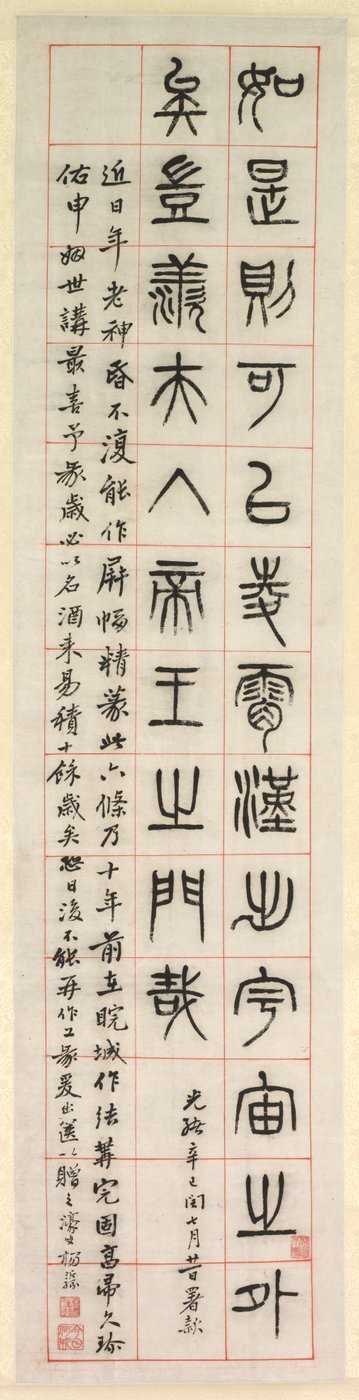 如是則可㠯凌霄漢出宇宙之外
矣豈羨夫入帝王之門哉
光緒辛巳閏七月廿日署款
近日年老神昏不復能作屏幅精篆此六條乃十年前在皖城作結搆完固高帚久珍
佑申姻世講最喜予篆歲必以名酒来易積十餘歲矣恐日後不能再作工篆爰出篋以贈之濠叟楊沂孫